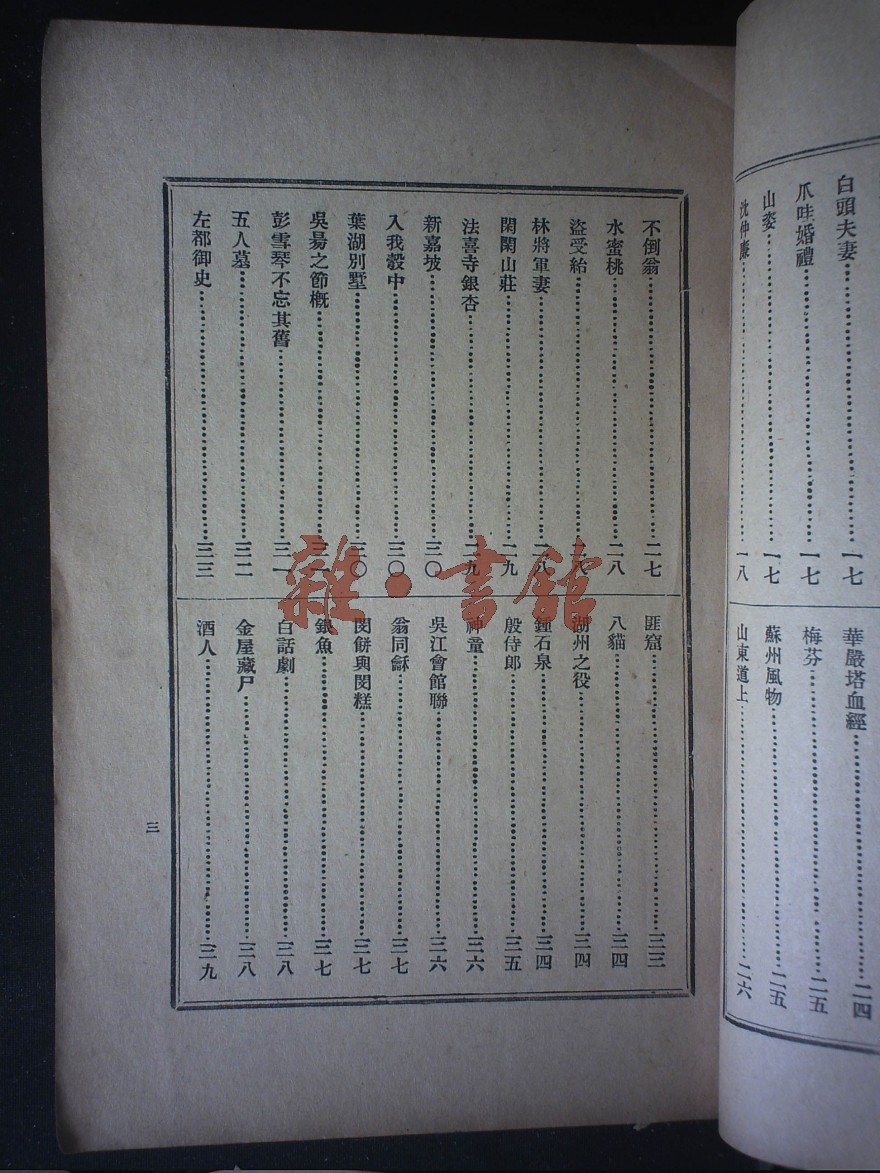 白頭夫妻…一七
爪哇婚禮…一七
山姿…一七
沈仲…一八
華嚴塔血經…二四
梅芬…二五
蘇州風物…二五
山東道上…二六
不倒翁…二七
水蜜桃…二八
盜受給…二八
林將軍妻…二八
閑閑山莊…二九
法喜寺銀杏…二九
新嘉坡…三〇
入我彀中…三〇
葉湖別墅…三〇
吳昜之節槪…三一
彭雪琴不忘其舊…三一
五人墓…三二
左都御史…三三
匪窟…三三
八貓…三四
湖州之役…三四
鍾石泉…三四
殷侍郎…三五
神童…三六
吳江會館聯…三六
翁同龢…三七
閔餅與閔糕…三七
銀魚…三七
白話劇…三八
金屋藏尸…三八
酒人…三九
三
雜·書舘